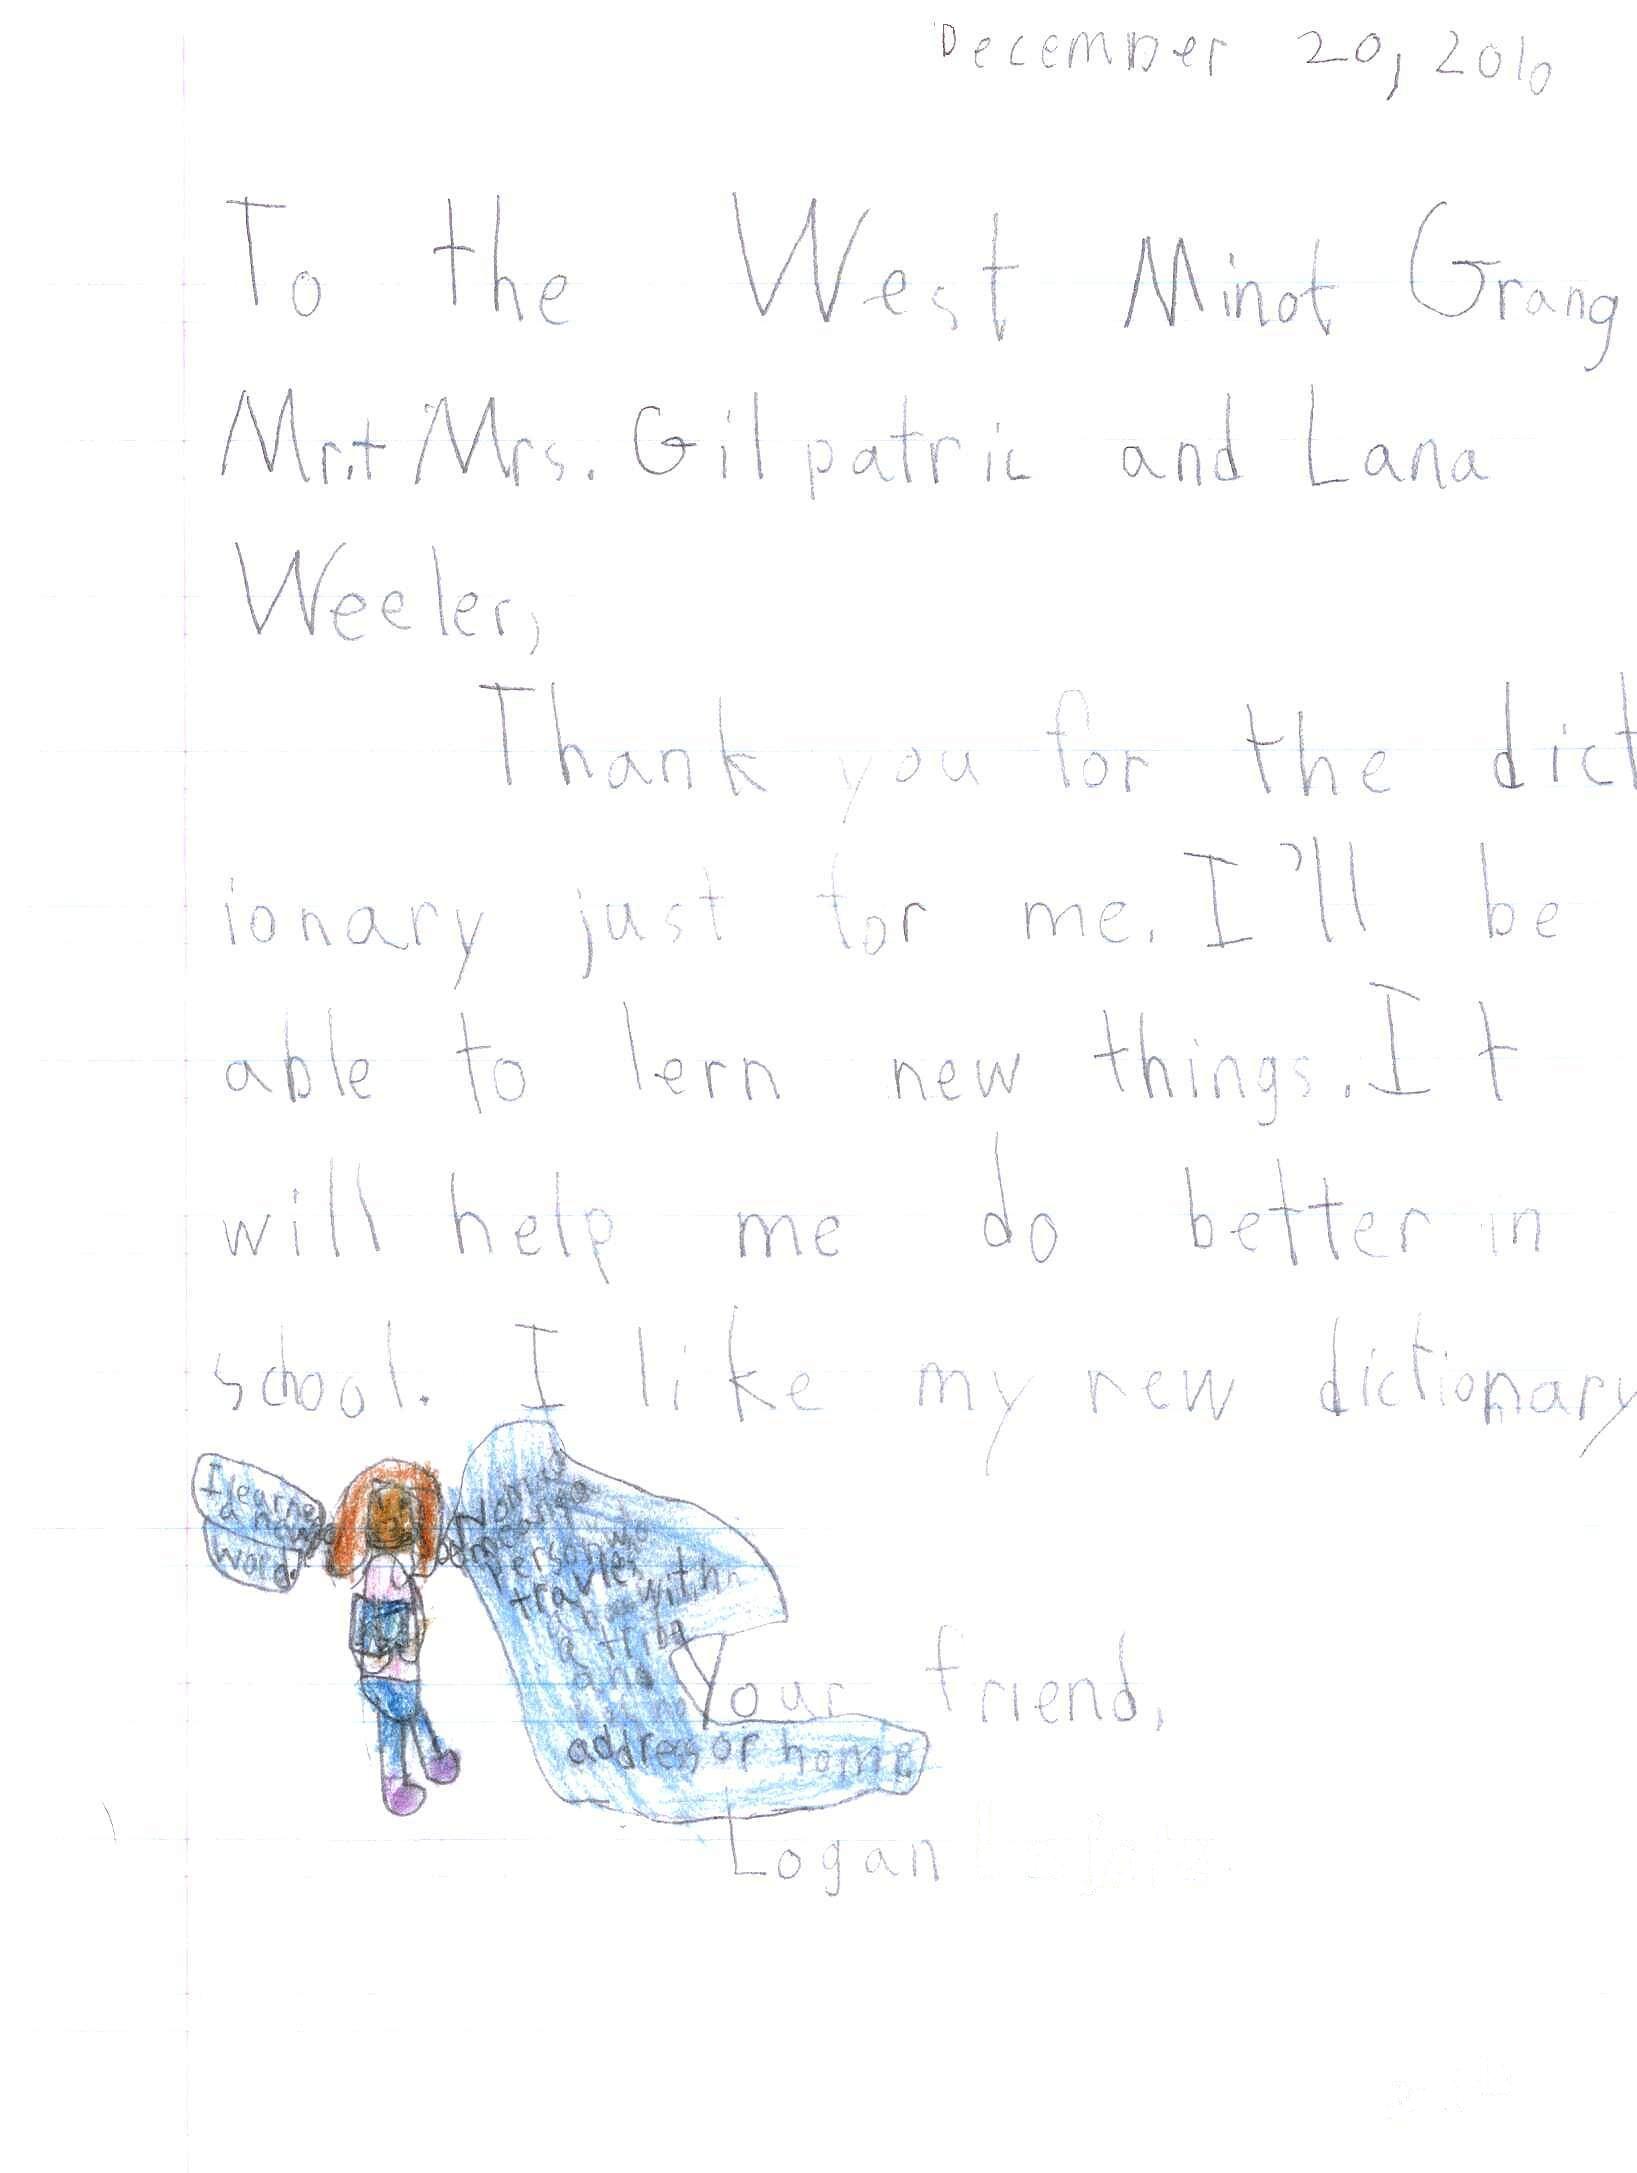 December 20, 2010
To the West Minot Grang
Mr.+ Mrs. Gilpatric and Lana
Weeler,
Thank you for the dict
ionary just for me. I'll be
able to lern new things. It
will help me do better in
school. I like my new dictionary
I learne
a new
word
Nomad
means a
person who
travles
with
a trib
and
address or home
Your friend,
Logan